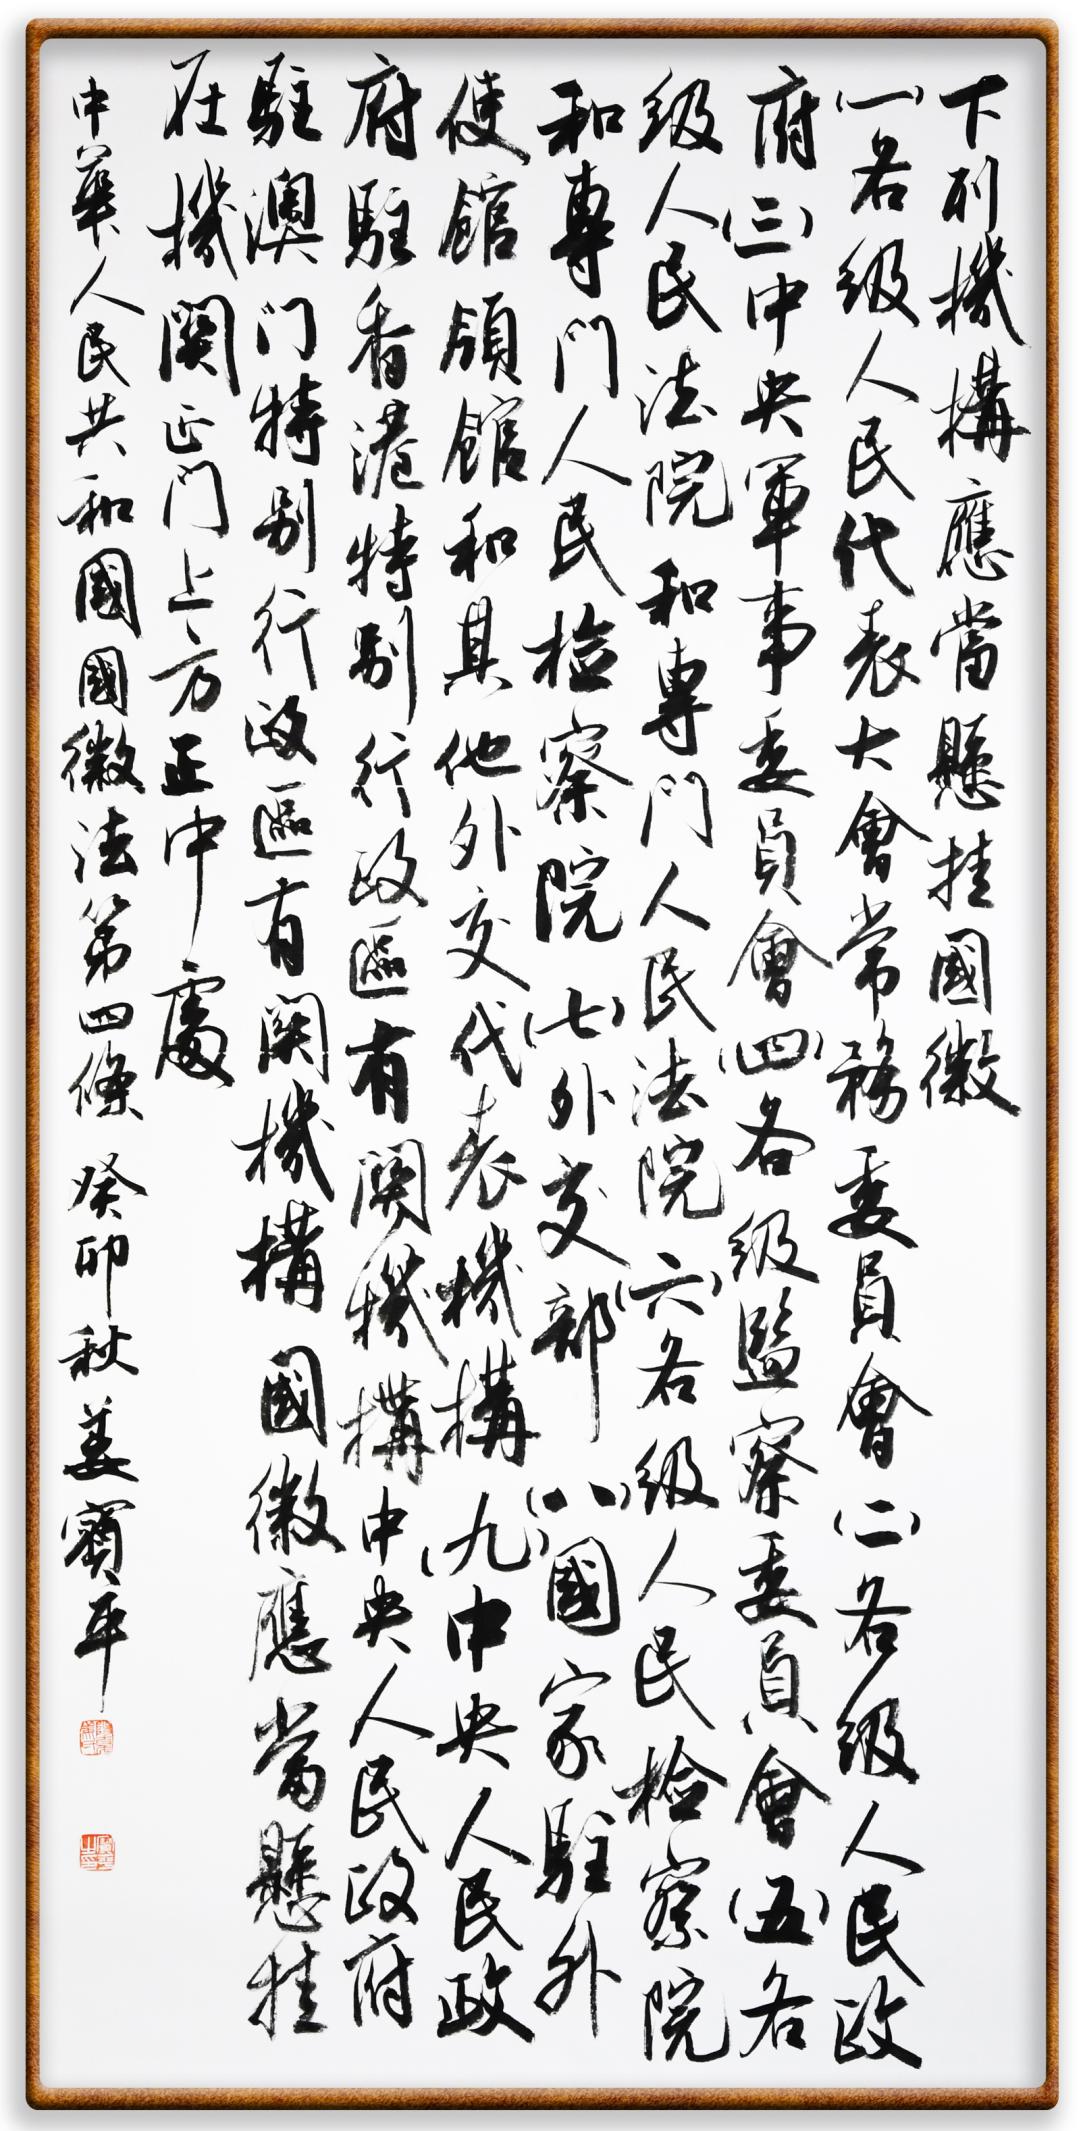 下列機構應當懸挂國徽
(一)各级人民代表大會常務委員會(二)各级人民政
府(三)中央軍事委員會(四)各级監察委員會(五)各
级人民法院和專門人民法院(六)各级人民检察院
和專門人民检察院(七)外交部(八)國家駐外
使館領館和其他外交代表機構(九)中央人民政
府駐香港特别行政區有関機構中央人民政府
駐澳门特别行政區有関機構國徽應當懸挂
在機関正门上方正中處
中華人民共和國國徽法第四條 癸卯秋 姜寶平